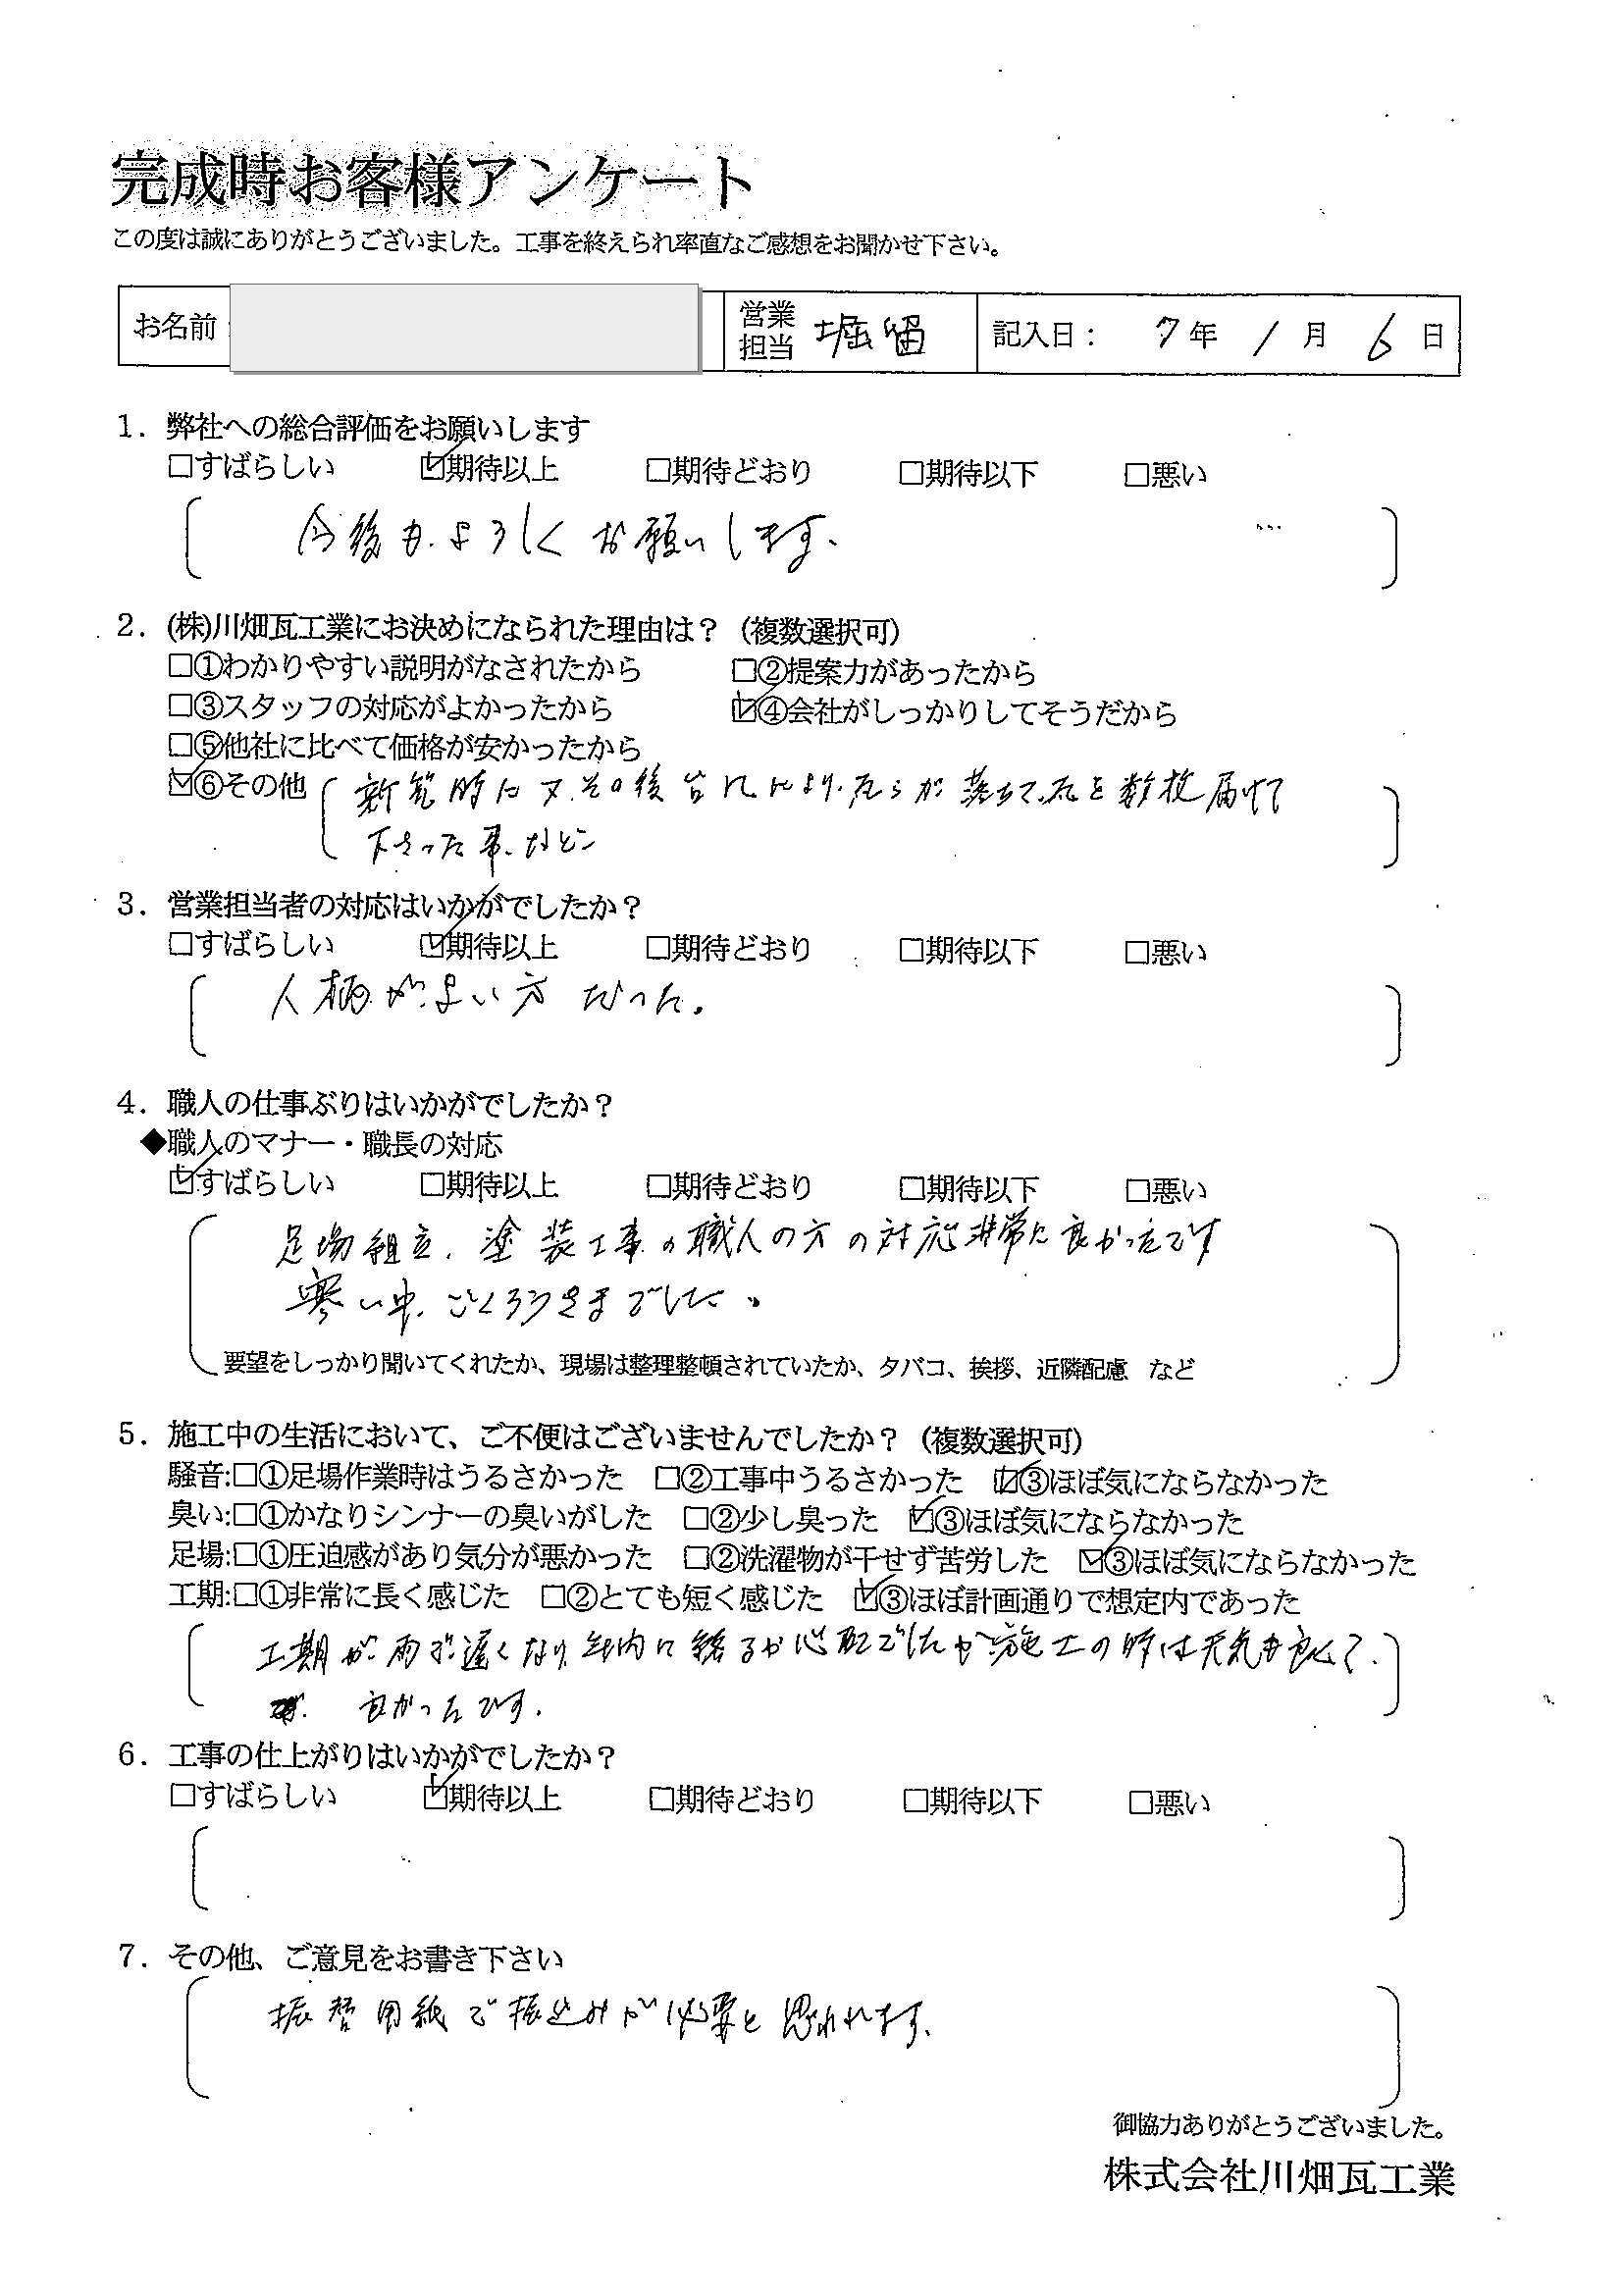 完成時お客様アンケート
この度は誠にありがとうございました。工事を終えられ率直なご感想をお聞かせ下さい。
お名前 営業担当 堀留 記入日： 7年 1月 6日
1．弊社への総合評価をお願いします
□すばらしい ☑期待以上 □期待どおり □期待以下 □悪い
今後もよろしくお願いします。
2．(株)川畑瓦工業にお決めになられた理由は？（複数選択可）
□①わかりやすい説明がなされたから □②提案力があったから
□③スタッフの対応がよかったから ☑④会社がしっかりしてそうだから
□⑤他社に比べて価格が安かったから
☑⑥その他 新築時に又、その後台風により、瓦が落ちて、瓦を数枚届けて
下さった事、など
3．営業担当者の対応はいかがでしたか？
□すばらしい ☑期待以上 □期待どおり □期待以下 □悪い
人柄がよい方だった。
4．職人の仕事ぶりはいかがでしたか？
◆職人のマナー・職長の対応
☑すばらしい □期待以上 □期待どおり □期待以下 □悪い
足場組立、塗装工事の職人の方の対応非常に良かったです
寒い中、ごくろうさまでした。
要望をしっかり聞いてくれたか、現場は整理整頓されていたか、タバコ、挨拶、近隣配慮　など
5．施工中の生活において、ご不便はございませんでしたか？（複数選択可）
騒音:□①足場作業時はうるさかった □②工事中うるさかった ☑③ほぼ気にならなかった
臭い:□①かなりシンナーの臭いがした □②少し臭った ☑③ほぼ気にならなかった
足場:□①圧迫感があり気分が悪かった □②洗濯物が干せず苦労した ☑③ほぼ気にならなかった
工期:□①非常に長く感じた □②とても短く感じた ☑③ほぼ計画通りで想定内であった
工期が雨で遅くなり、年内に終るか心配でしたが、施工の時は天気も良くて、
良かったです。
6．工事の仕上がりはいかがでしたか？
□すばらしい ☑期待以上 □期待どおり □期待以下 □悪い
7．その他、ご意見をお書き下さい
振替用紙で振込みが必要と思われます。
御協力ありがとうございました。
株式会社川畑瓦工業